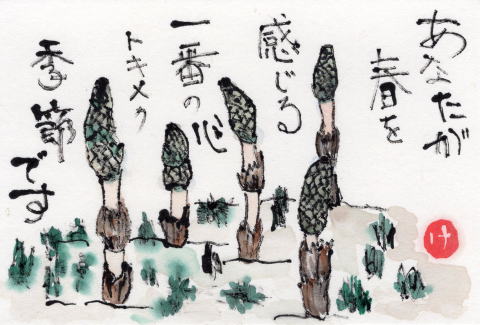 あなたが
春を
感じる
一番の心
トキメク
季節です
け